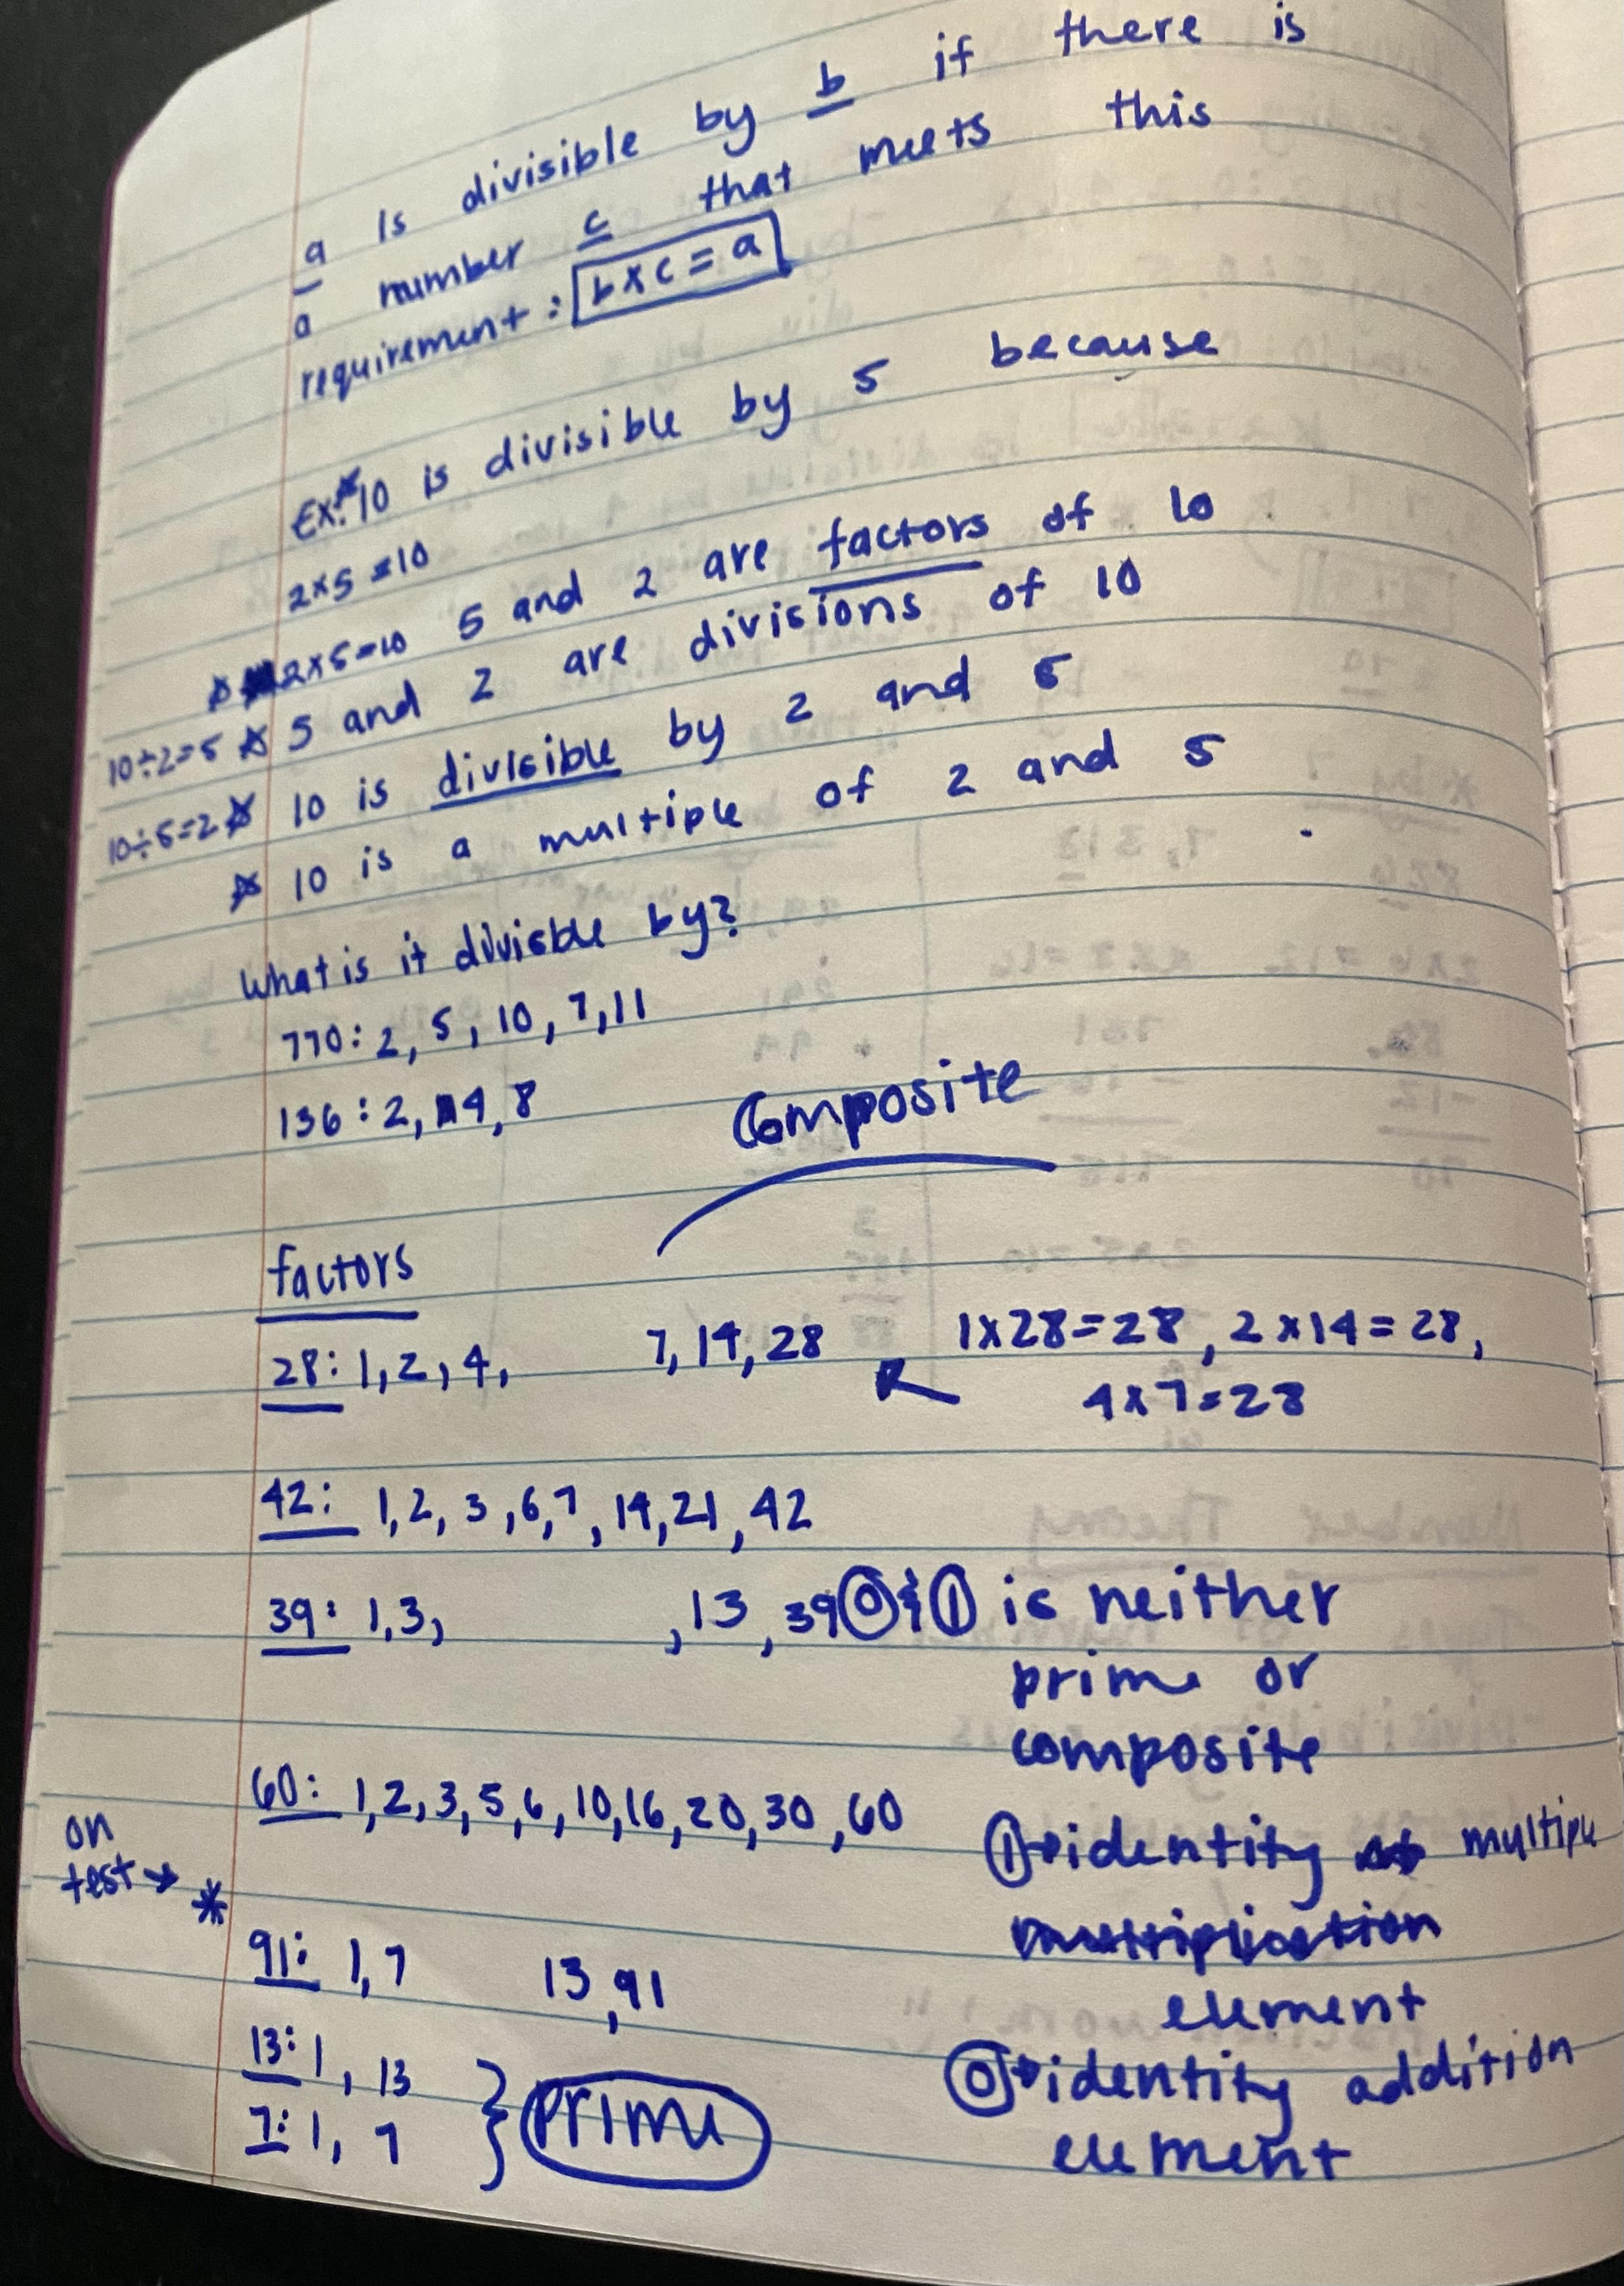 a is divisible by b if there is
a number c that meets this
requirement: b×c=a
Ex: 10 is divisible by 5 because
2×5=10
2×5=10 5 and 2 are factors of 10
10÷2=5 5 and 2 are divisions of 10
10÷5=2 10 is divisible by 2 and 5
10 is a multiple of 2 and 5
What is it divisble by?
770: 2, 5, 10, 7, 11
136: 2, 4, 8
Composite
factors
28: 1, 2, 4, 7, 14, 28
1×28=28, 2×14=28,
4×7=28
42: 1, 2, 3, 6, 7, 14, 21, 42
39: 1, 3, , 13, 39
0 & 1 is neither
prime or
composite
60: 1, 2, 3, 5, 6, 10, 16, 20, 30, 60
on
test → *
1→identity multiple
multiplication
element
91: 1, 7 13, 91
13: 1, 13
7: 1, 7
prime
0→identity addition
element